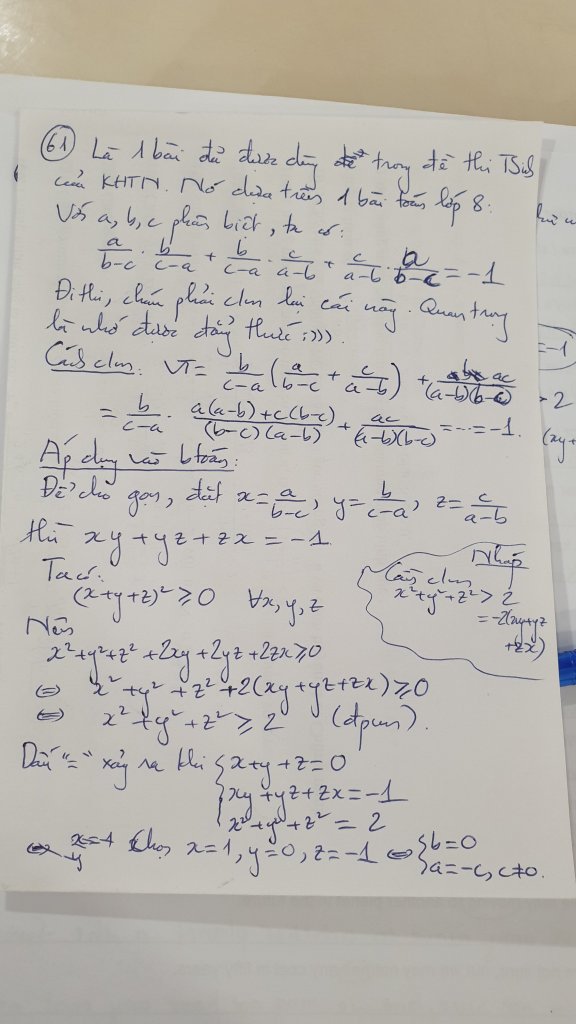 61 Là 1 bài đã được dùng trong đề thi TSinh
của KHTN. Nó dựa trên 1 bài toán lớp 8:
Với a, b, c phân biệt, ta có:
a/(b-c) . b/(c-a) + b/(c-a) . c/(a-b) + c/(a-b) . a/(b-c) = -1
Đi thi, chúng phải clm lại cái này. Quan trọng
là nhớ được đẳng thức :)))
Cách clm: VT = b/(c-a) (a/(b-c) + c/(a-b)) + ac/((a-b)(b-c))
= b/(c-a) . (a(a-b)+c(b-c))/((b-c)(a-b)) + ac/((a-b)(b-c)) = ... = -1.
Áp dụng vào btoán:
Để cho gọn, đặt x = a/(b-c), y = b/(c-a), z = c/(a-b)
thì xy + yz + zx = -1
Nháp
Cần clm
x² + y² + z² > 2
= -2(xy+yz
+zx)
Ta có:
(x+y+z)² ≥ 0 ∀x, y, z
Nên
x² + y² + z² + 2xy + 2yz + 2zx ≥ 0
⇔ x² + y² + z² + 2(xy + yz + zx) ≥ 0
⇔ x² + y² + z² ≥ 2 (đpcm).
Dấu "=" xảy ra khi { x + y + z = 0
xy + yz + zx = -1
x² + y² + z² = 2
Chọn x = 1, y = 0, z = -1 ⇔ { b = 0
a = -c, c ≠ 0.
= -1
2
(xy+